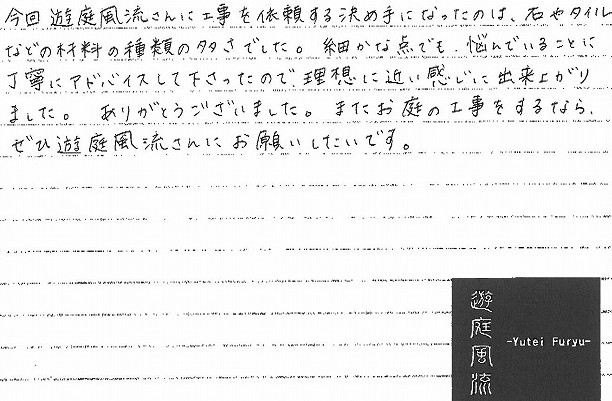 今回 遊庭風流さんに工事を依頼する決め手になったのは、石やタイル
などの材料の種類の多さでした。 細かな点でも、悩んでいることに
丁寧にアドバイスして下さったので、理想に近い感じに出来上がり
ました。 ありがとうございました。 またお庭の工事をするなら、
ぜひ遊庭風流さんにお願いしたいです。
遊庭風流
-Yutei Furyu-